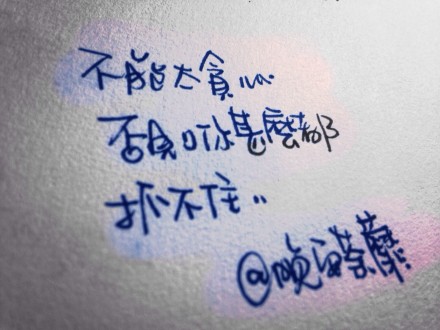 不能太貪心..
否則你甚麼都
抓不住..
@荼蘼